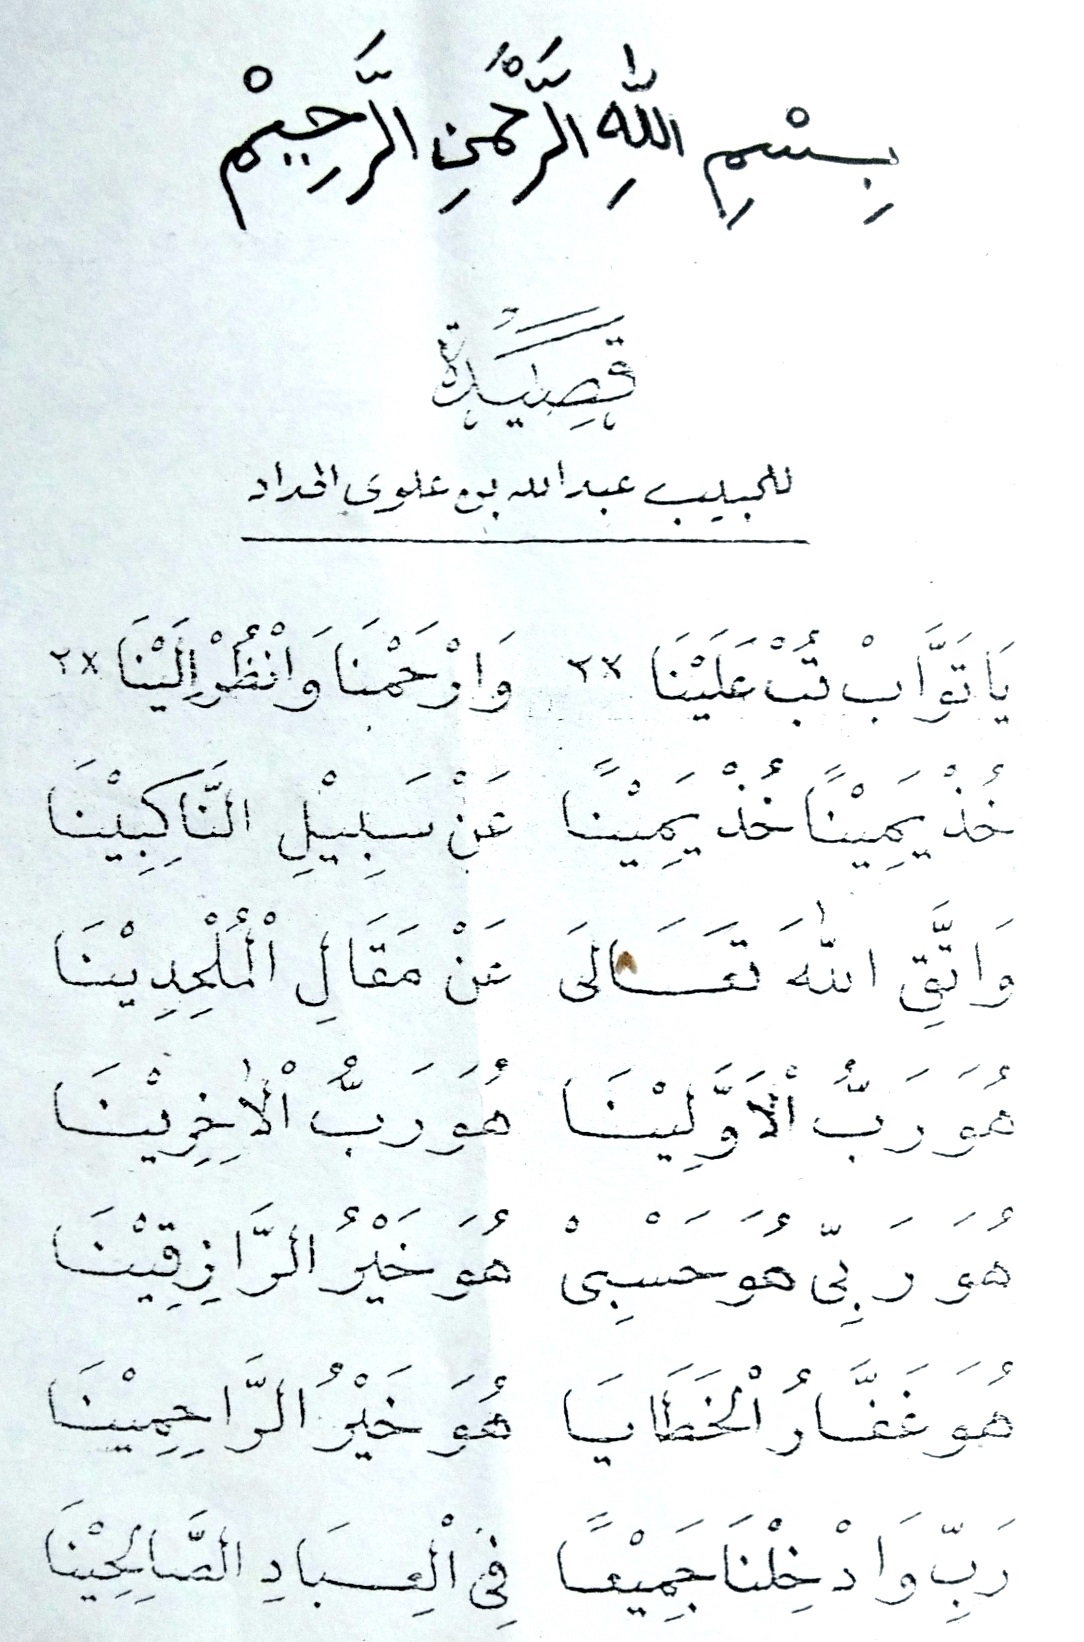 بِسْمِ اللّٰهِ الرَّحْمٰنِ الرَّحِيْمِ
قَصِيْدَة
للحبيب عبدالله بن علوى الحداد
يَا تَوَّابْ تُبْ عَلَيْنَا ٢x وَارْحَمْنَا وَانْظُرْ اِلَيْنَا ٢x
خُذْ يَمِيْنًا خُذْ يَمِيْنًا عَنْ سَبِيْلِ النَّاكِبِيْنَا
وَاتَّقِ اللّٰهَ تَعَالَى عَنْ مَقَالِ الْمُلْحِدِيْنَا
هُوَ رَبُّ الْاَوَّلِيْنَا هُوَ رَبُّ الْاٰخِرِيْنَا
هُوَ رَبِّى هُوَ حَسْبِىْ هُوَ خَيْرُ الرَّازِقِيْنَا
هُوَ غَفَّارُ الْخَطَايَا هُوَ خَيْرُ الرَّاحِمِيْنَا
رَبِّ وَادْخِلْنَا جَمِيْعًا فِى الْعِبَادِ الصَّالِحِيْنَا